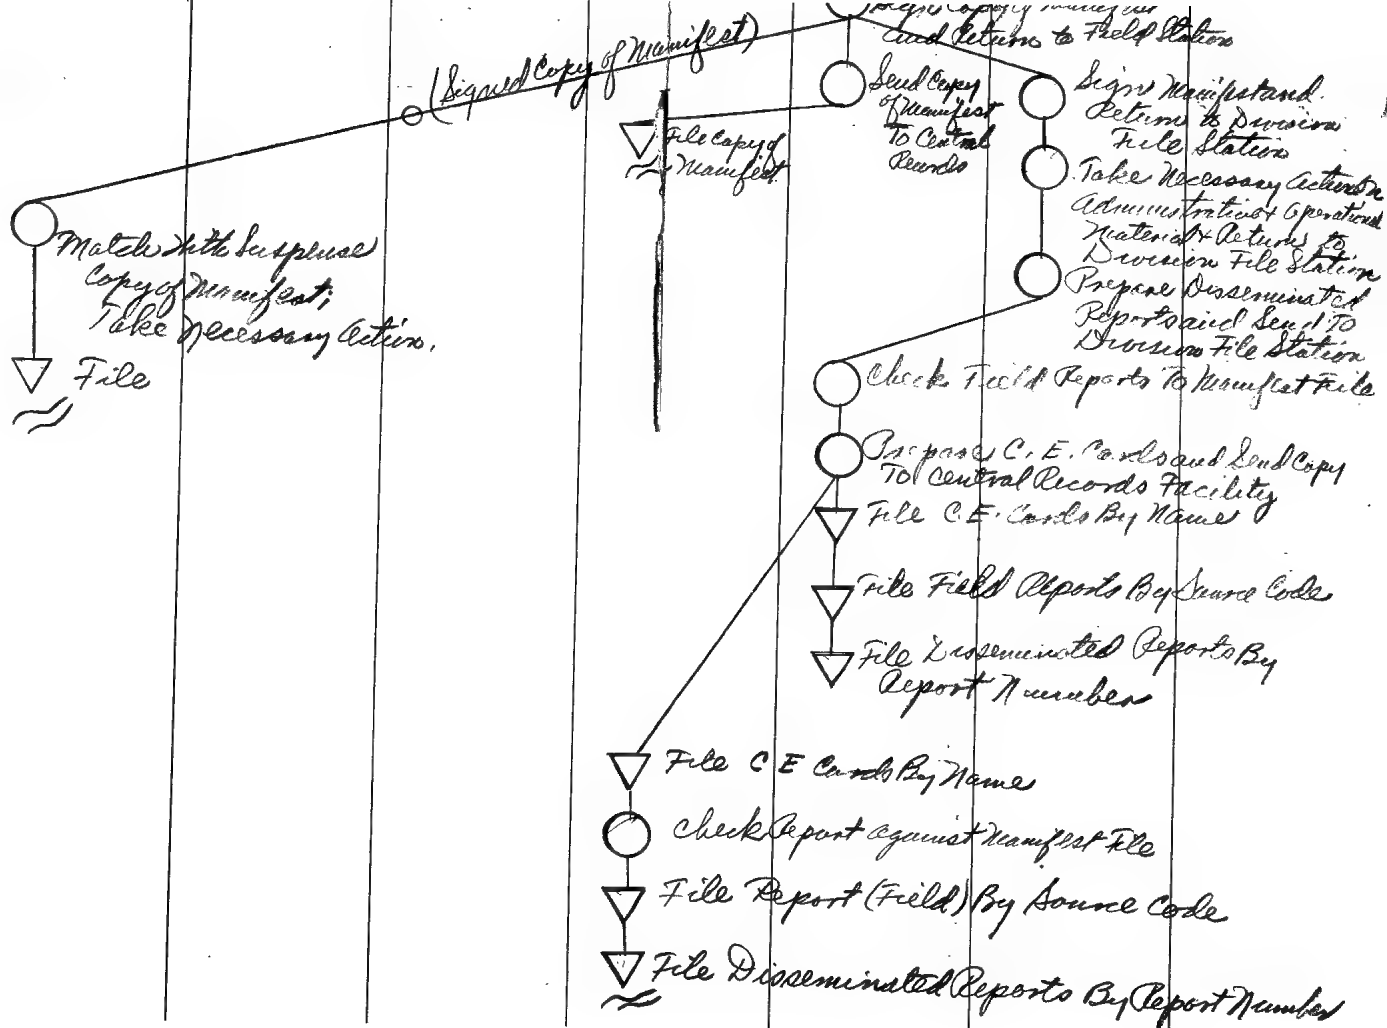 Sign Copy of Manifest
and Return to Field Station
(Signed Copy of Manifest)
Send Copy
of Manifest
To Central
Records
File Copy of
Manifest
Sign Manifest and
Return to Division
File Station
Take Necessary Action on
Administrative & Operational
Material & Returns to
Division File Station
Prepare Disseminated
Reports and Send To
Division File Station
Match With Suspense
Copy of Manifest;
Take Necessary Action.
File
Check Field Reports To Manifest File
Prepare C. E. Cards and Send Copy
To Central Records Facility
File C.E. Cards By Name
File Field Reports By Source Code
File Disseminated Reports By
Report Number
File C E Cards By Name
Check Report against Manifest File
File Report (Field) By Source Code
File Disseminated Reports By Report Number